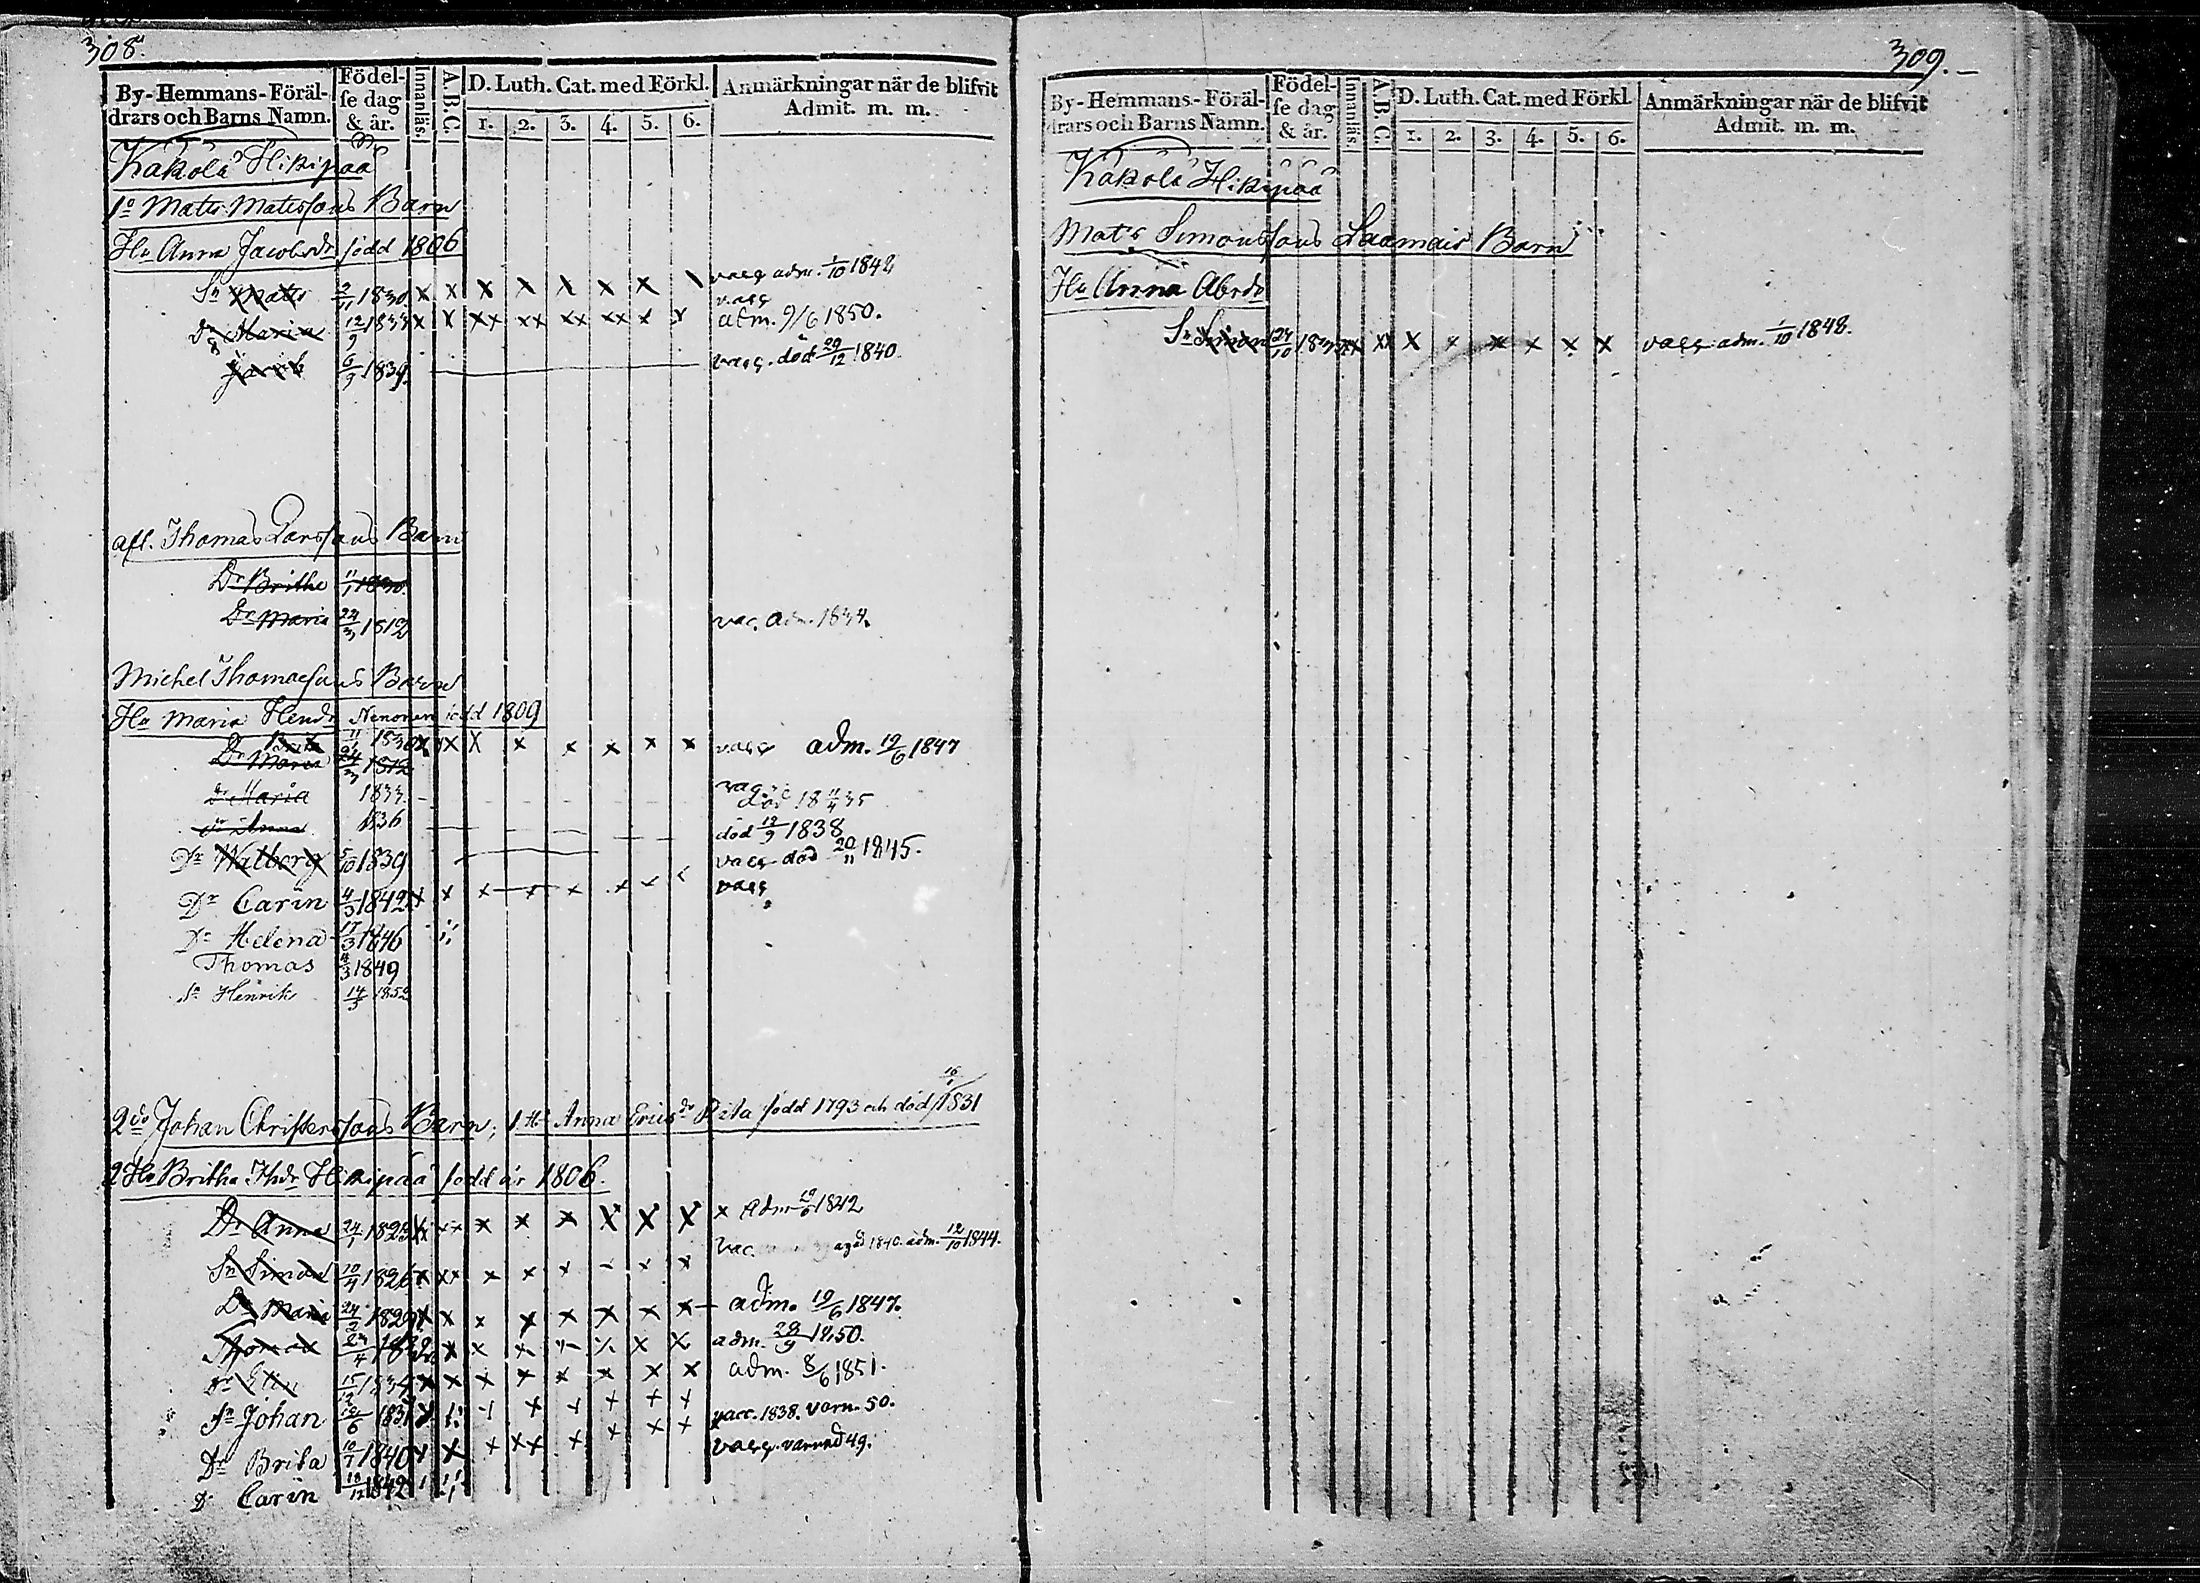 308.
By-Hemmans-Föräl-
drars och Barns Namn.
Födel-
se dag
& år.
Innanläs.
A.B.C.
D. Luth. Cat. med Förkl.
1. 2. 3. 4. 5. 6.
Anmärkningar när de blifvit
Admit. m. m.
Kakola Hikipää
1o Mats Matssons Barn
Hu Anna Jacobsdr född 1806
Sn Mats 1830 x x x x x x x vacc adm. 1/10 1842
vacc
Dr Maria 12/9 1833 x x xx xx xx xx x x adm. 9/6 1850.
Jacob 6/9 1839. vacc. död 29/12 1840.
afl. Thomas Larssons Barn
Dr Britha 11/1 1830.
Dr Maria 24/3 1812 vac. adm. 1834.
Michel Thomassons Barn
Hu Maria Hendr Nenonen född 1809
Brita 11/1 1830 x x x x x x x x vacc adm. 19/6 1847
Dr Maria 24/3 1812
dr Maria 1833 död 18 11/4 35
dr Anna 1836 död 12/9 1838
Dr Walborg 5/10 1839 vacc död 20/11 1845.
Dr Carin 4/3 1842 x x x x x x vacc
Dr Helena 17/3 1846
Thomas 4/3 1849
Sn Henrik 14/3 1852
2do Johan Christerssons Barn, 1 Hu Anna Ericsdr Pila född 1793 och död 16/1 1831
2 Hu Britha Thdr Hikipää född år 1806.
Dr Anna 24/1 1823 x x x x x x x x Adm 19/6 1842
Sn Simon 10/4 1826 x xx x x x x x Vac. 1840. adm. 12/10 1844.
Dr Maria 24/2 1829 x x x x x x x x adm. 19/6 1847.
Thomas 23/4 1832 x x x x x x adm. 28/9 1850.
dr Elin 15/12 1834 x x x x x x x x adm. 8/6 1851.
Sn Johan 1837 x x x x x x vacc. 1838. varn. 50.
Dr Brita 10/7 1840 x x x xx x x x x vacc. varnad 49.
Dr Carin 10/12 1842
309.
By-Hemmans-Föräl-
drars och Barns Namn.
Födel-
se dag
& år.
Innanläs.
A.B.C.
D. Luth. Cat. med Förkl.
1. 2. 3. 4. 5. 6.
Anmärkningar när de blifvit
Admit. m. m.
Kakola Hikipää
Mats Simonssons Laamais Barn
Hu Anna Abrdr
Sn Simon xx xx x x x x x x vacc adm. 1/10 1848.